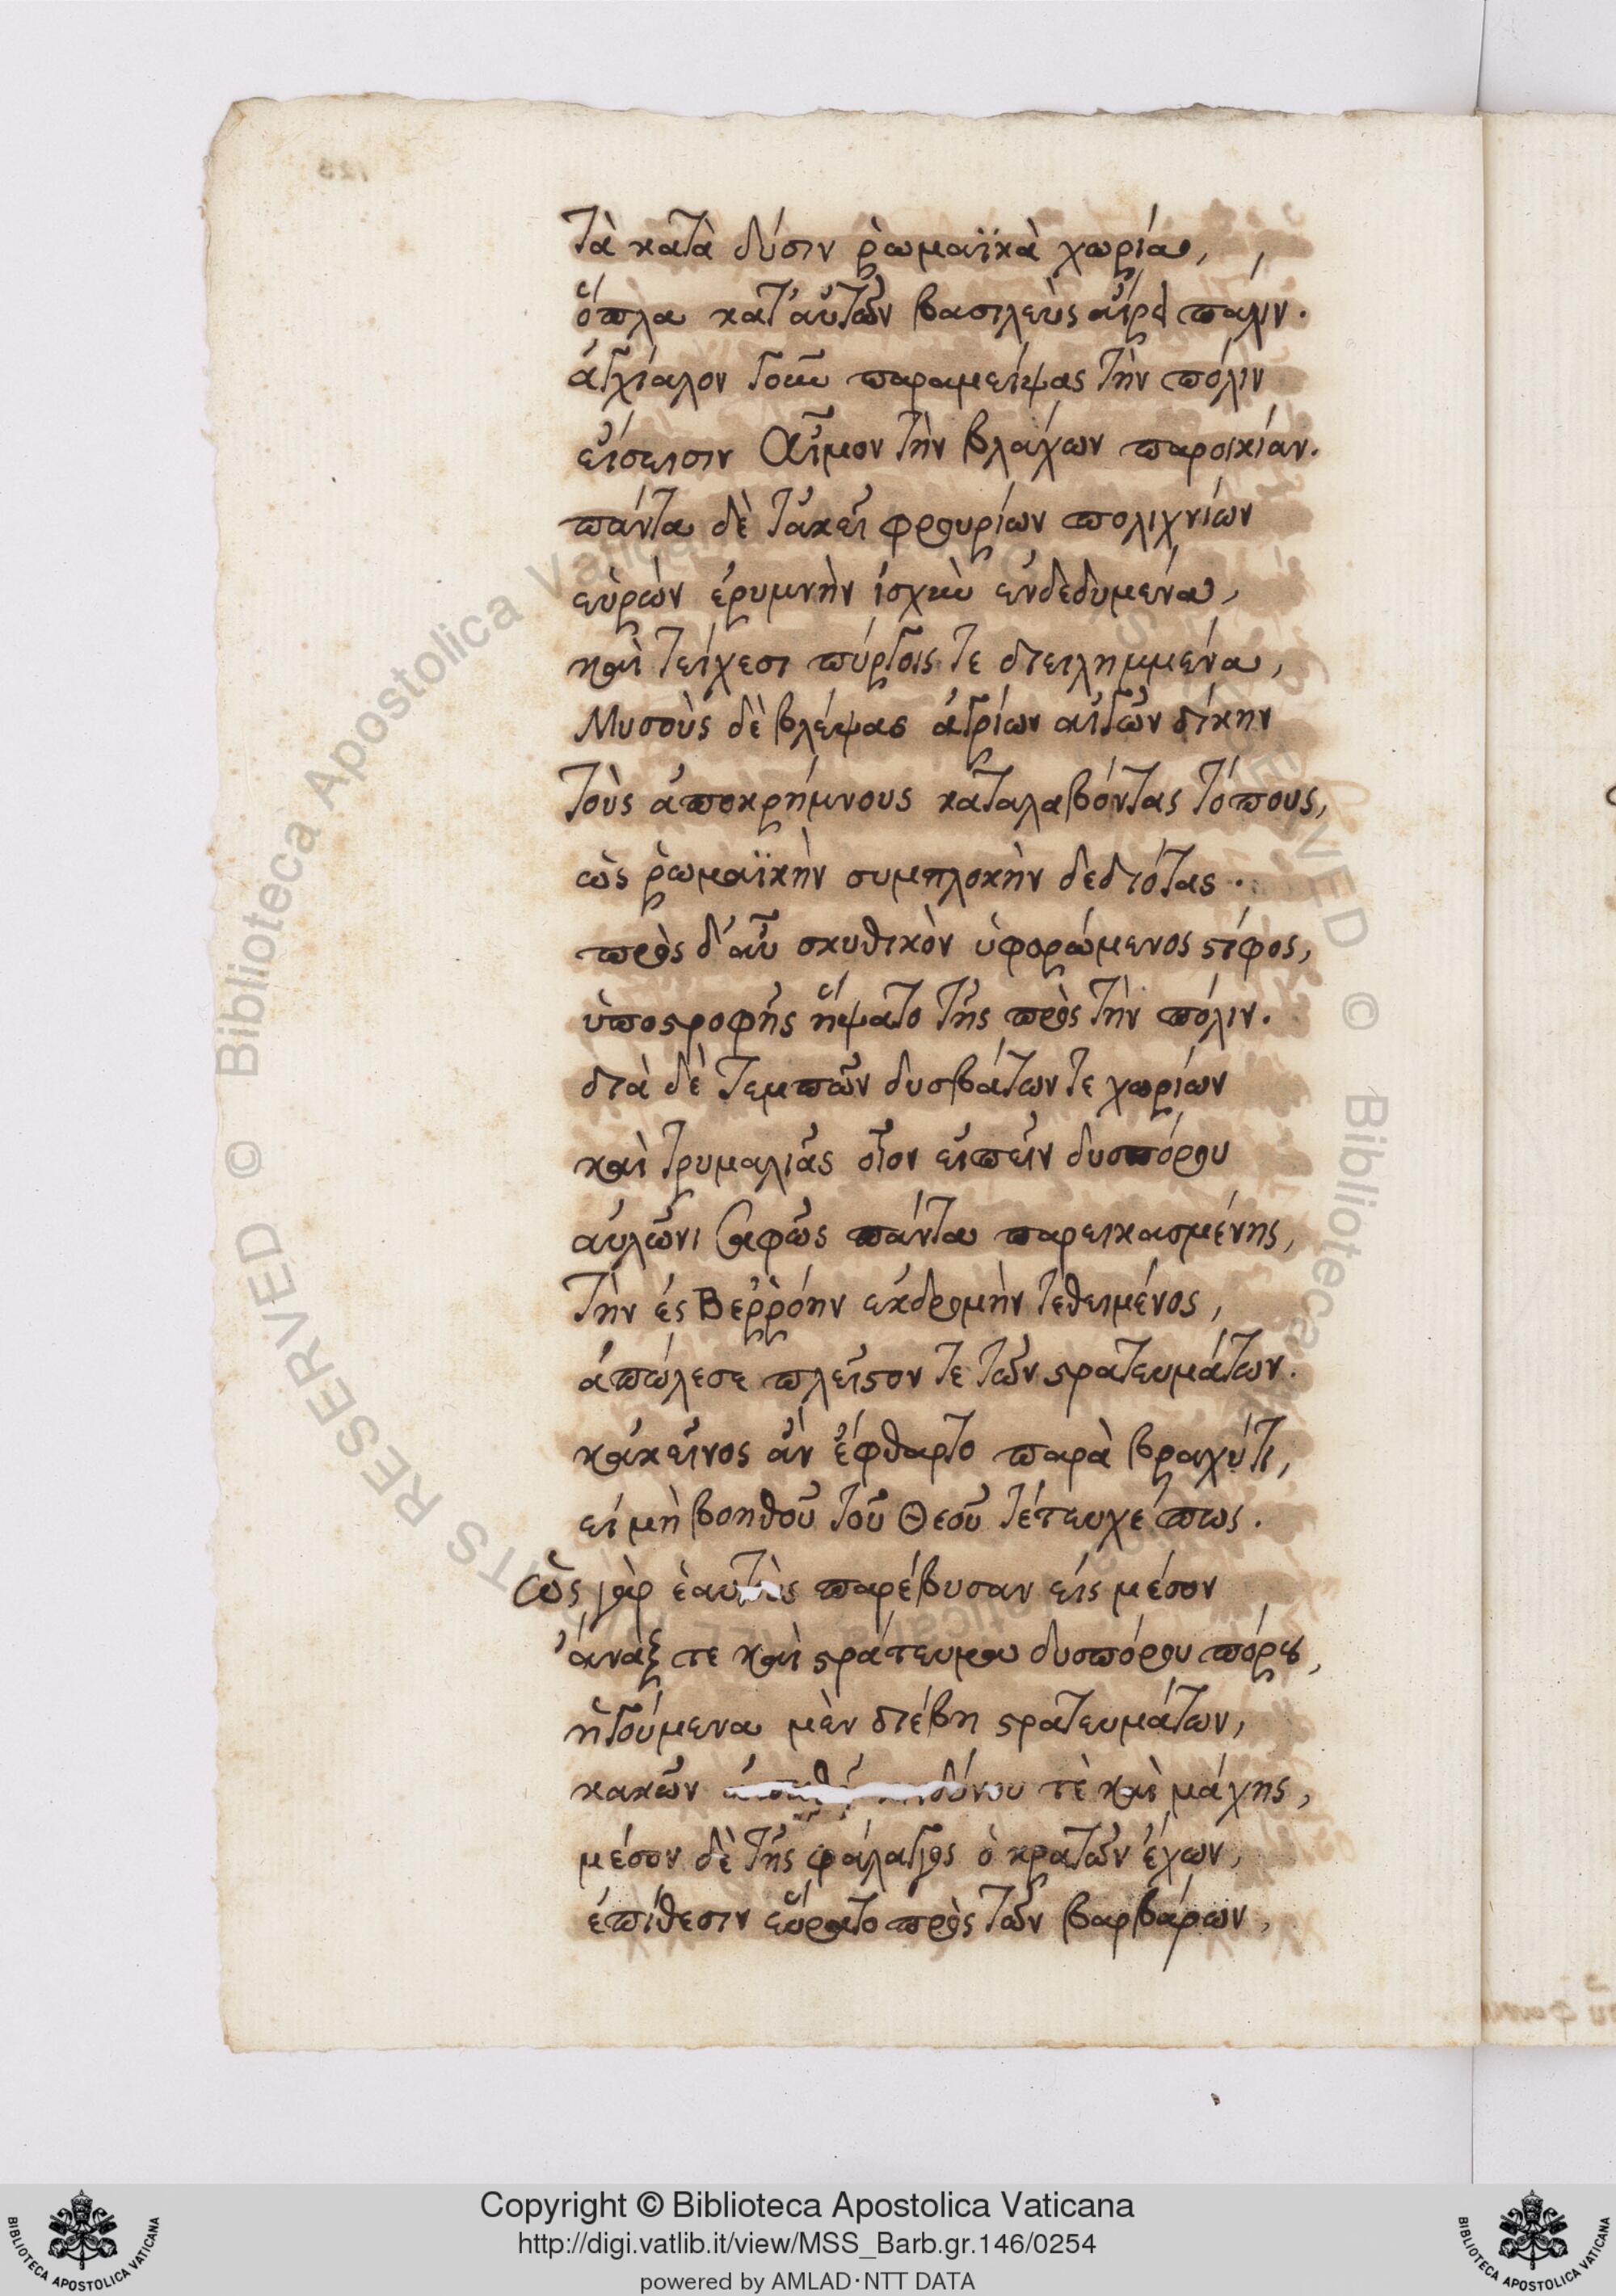 τὰ κατὰ δύσιν ῥωμαϊκὰ χωρία,
ὅπλα κατ' αὐτῶν βασιλεὺς αἴρει πάλιν.
ἀγχίαλον γοῦν παραμείψας τὴν πόλιν
εἴσεισιν Αἷμον τὴν βλάχων παροικίαν.
πάντα δὲ τἀκεῖ φρουρίων πολιχνίων
εὑρὼν ἐρυμνὴν ἰσχὺν ἐνδεδυμένα,
καὶ τείχεσι πύργοις τε διειλημμένα,
Μυσοὺς δὲ βλέψας ἀγρίων αἰγῶν δίκην
τοὺς ἀποκρήμνους καταλαβόντας τόπους,
ὡς ῥωμαϊκὴν συμπλοκὴν δεδιότας.
πρὸς δ' αὖ σκυθικὸν ὑφορώμενος στίφος,
ὑποστροφῆς ἥψατο τῆς πρὸς τὴν πόλιν.
διὰ δὲ τεμπῶν δυσβάτων τε χωρίων
καὶ τρυμαλιᾶς οἷον εἰπεῖν δυσπόρου
αὐλῶνι σαφῶς πάντα παρεικασμένης,
τὴν ἐς Βερρόην ἐκδρομὴν τεθειμένος,
ἀπώλεσε πλεῖστον τε τῶν στρατευμάτων.
κἀκεῖνος ἂν ἔφθαρτο παρὰ βραχύ τι,
εἰ μὴ βοηθοῦ τοῦ Θεοῦ τέτευχέ πως.
Ὡς γὰρ ἑαυτοὺς παρέβυσαν εἰς μέσον
ἄναξ τε καὶ στράτευμα δυσπόρου πόρου,
ἡγούμενα μὲν διέβη στρατευμάτων,
κακῶν κινδύνου τὲ καὶ μάχης,
μέσον δὲ τῆς φάλαγγος ὁ κρατῶν ἔχων,
ἐπίθεσιν εὕρατο πρὸς τῶν βαρβάρων,
Copyright © Biblioteca Apostolica Vaticana
http://digi.vatlib.it/view/MSS_Barb.gr.146/0254
powered by AMLAD·NTT DATA